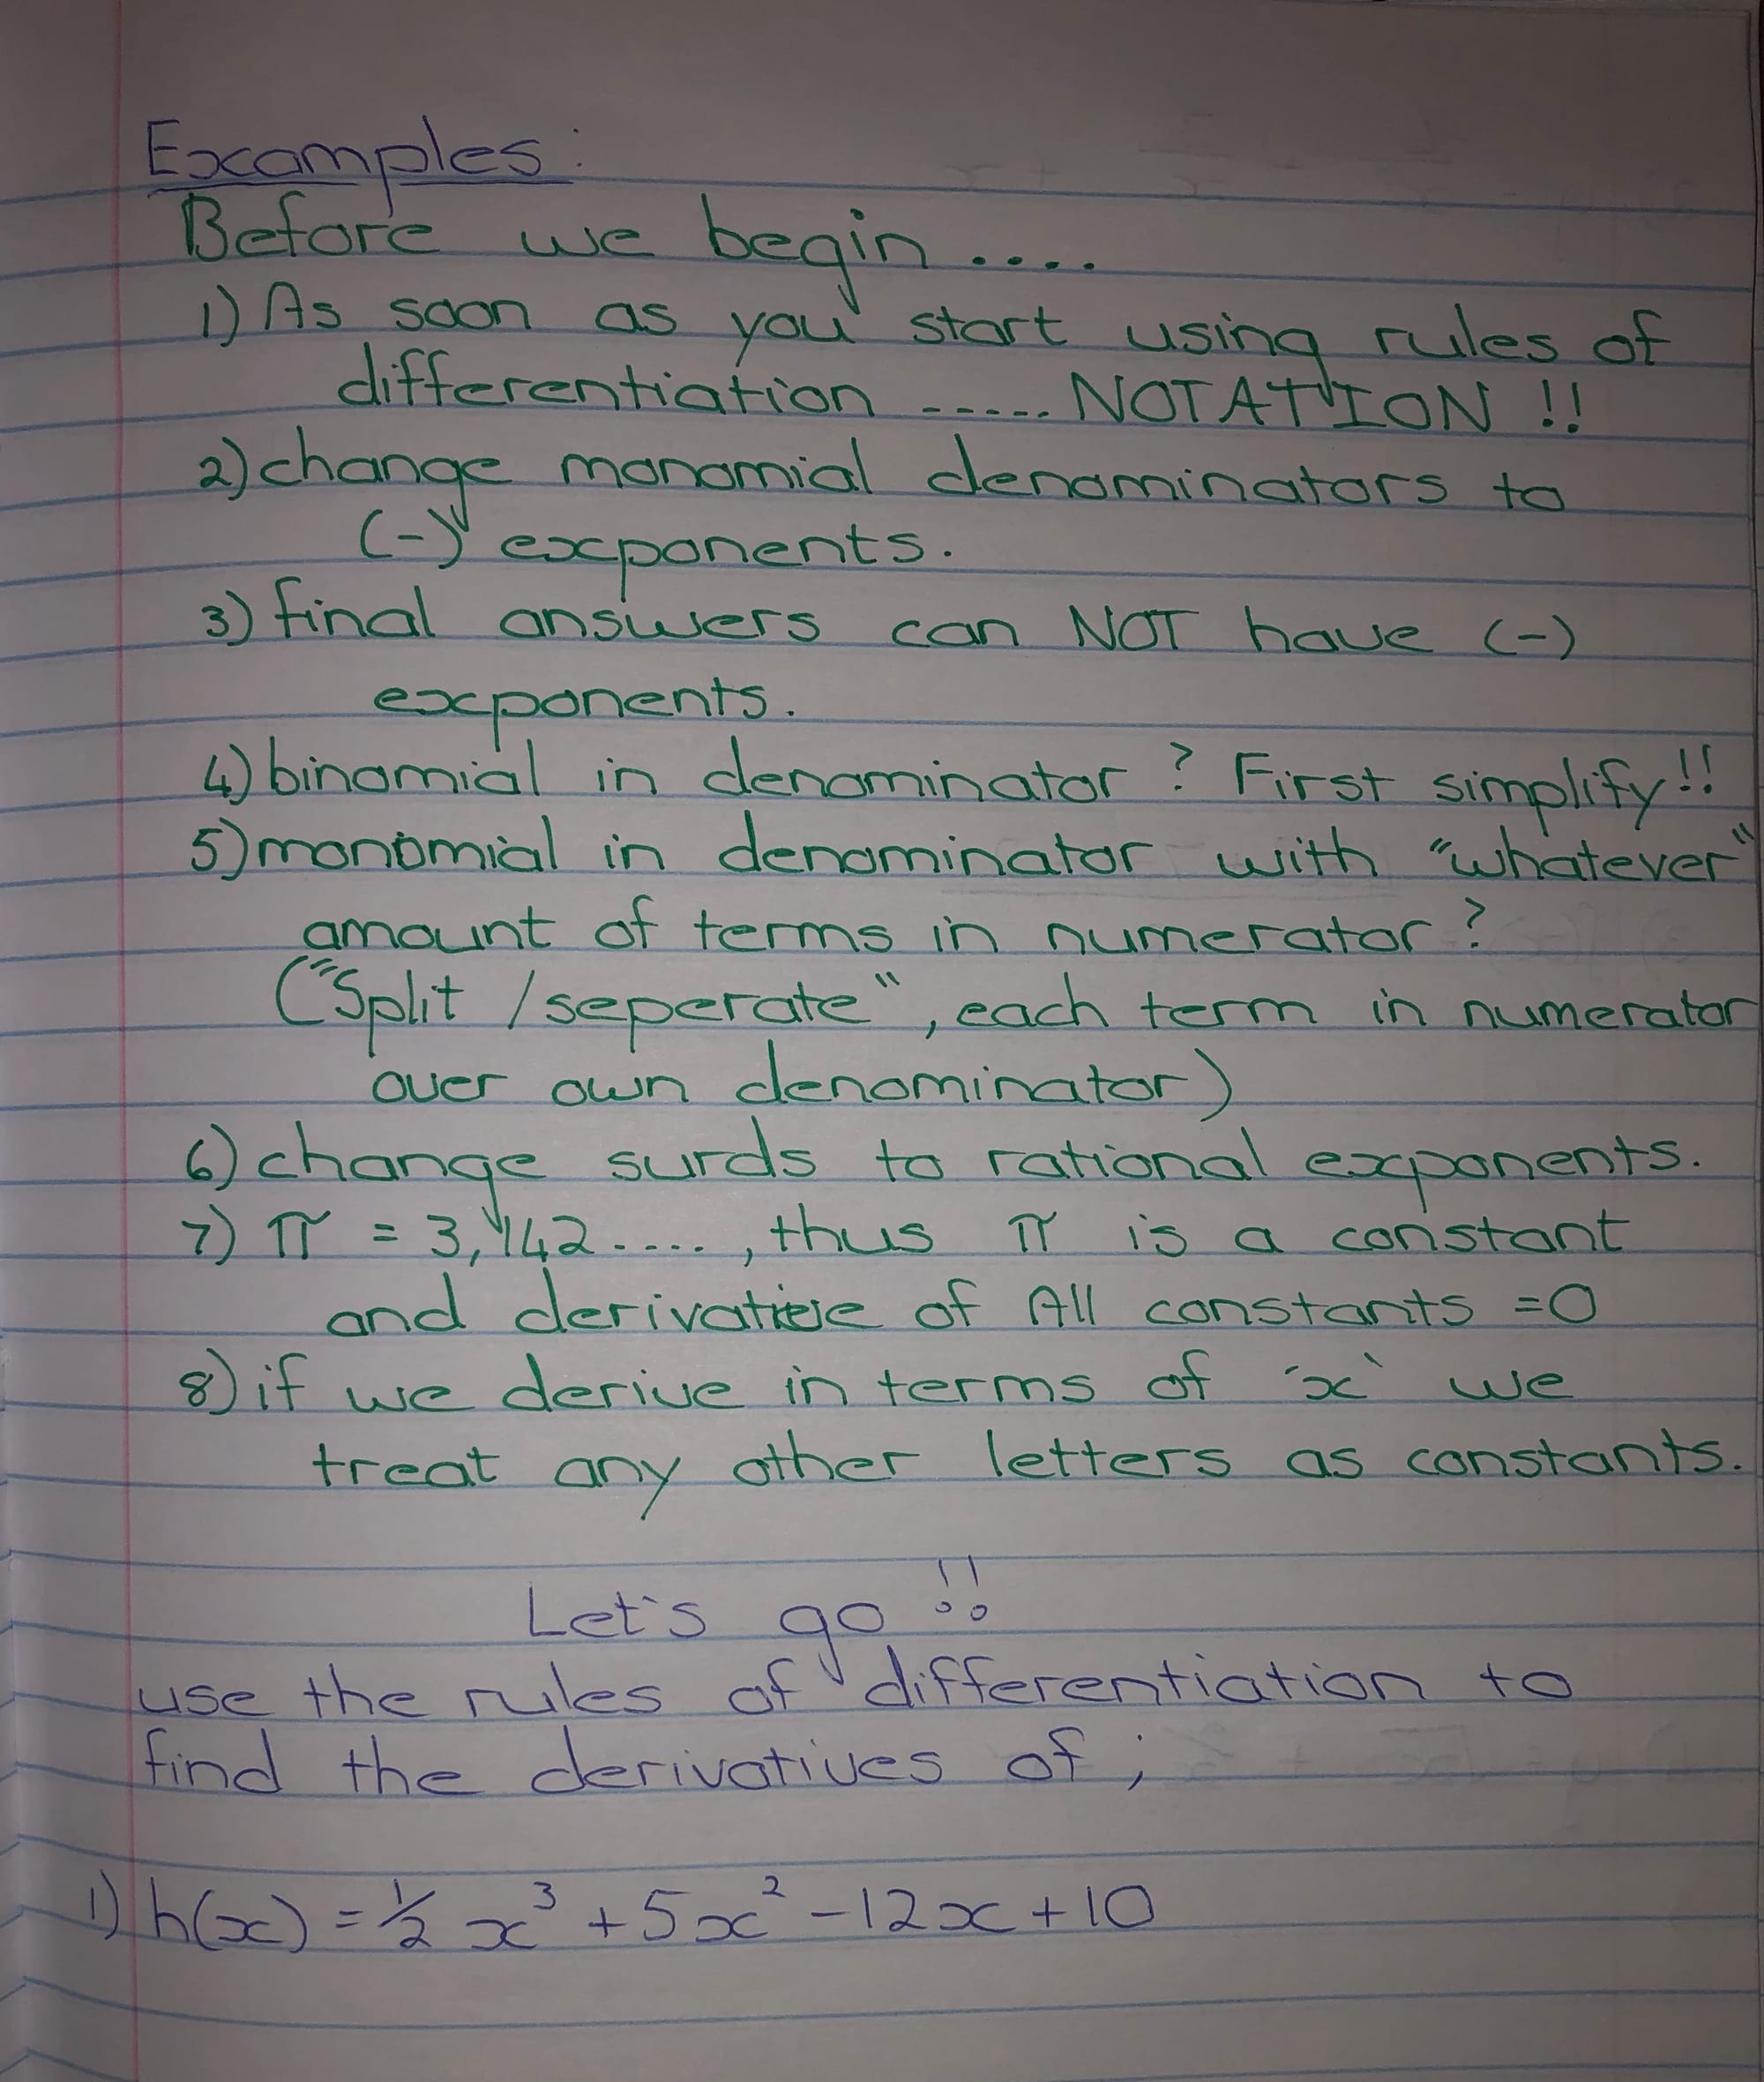 Examples:
Before we begin....
1) As soon as you start using rules of
differentiation ..... NOTATION !!
2) change monomial denominators to
(-) exponents.
3) final answers can NOT have (-)
exponents.
4) binomial in denominator ? First simplify!!
5) monomial in denominator with "whatever"
amount of terms in numerator ?
("Split / seperate", each term in numerator
over own denominator)
6) change surds to rational exponents.
7) π = 3,142...., thus π is a constant
and derivative of All constants =0
8) if we derive in terms of 'x' we
treat any other letters as constants.
Let's go !!
use the rules of differentiation to
find the derivatives of ;
1) h(x) = ½ x³ + 5x² - 12x + 10